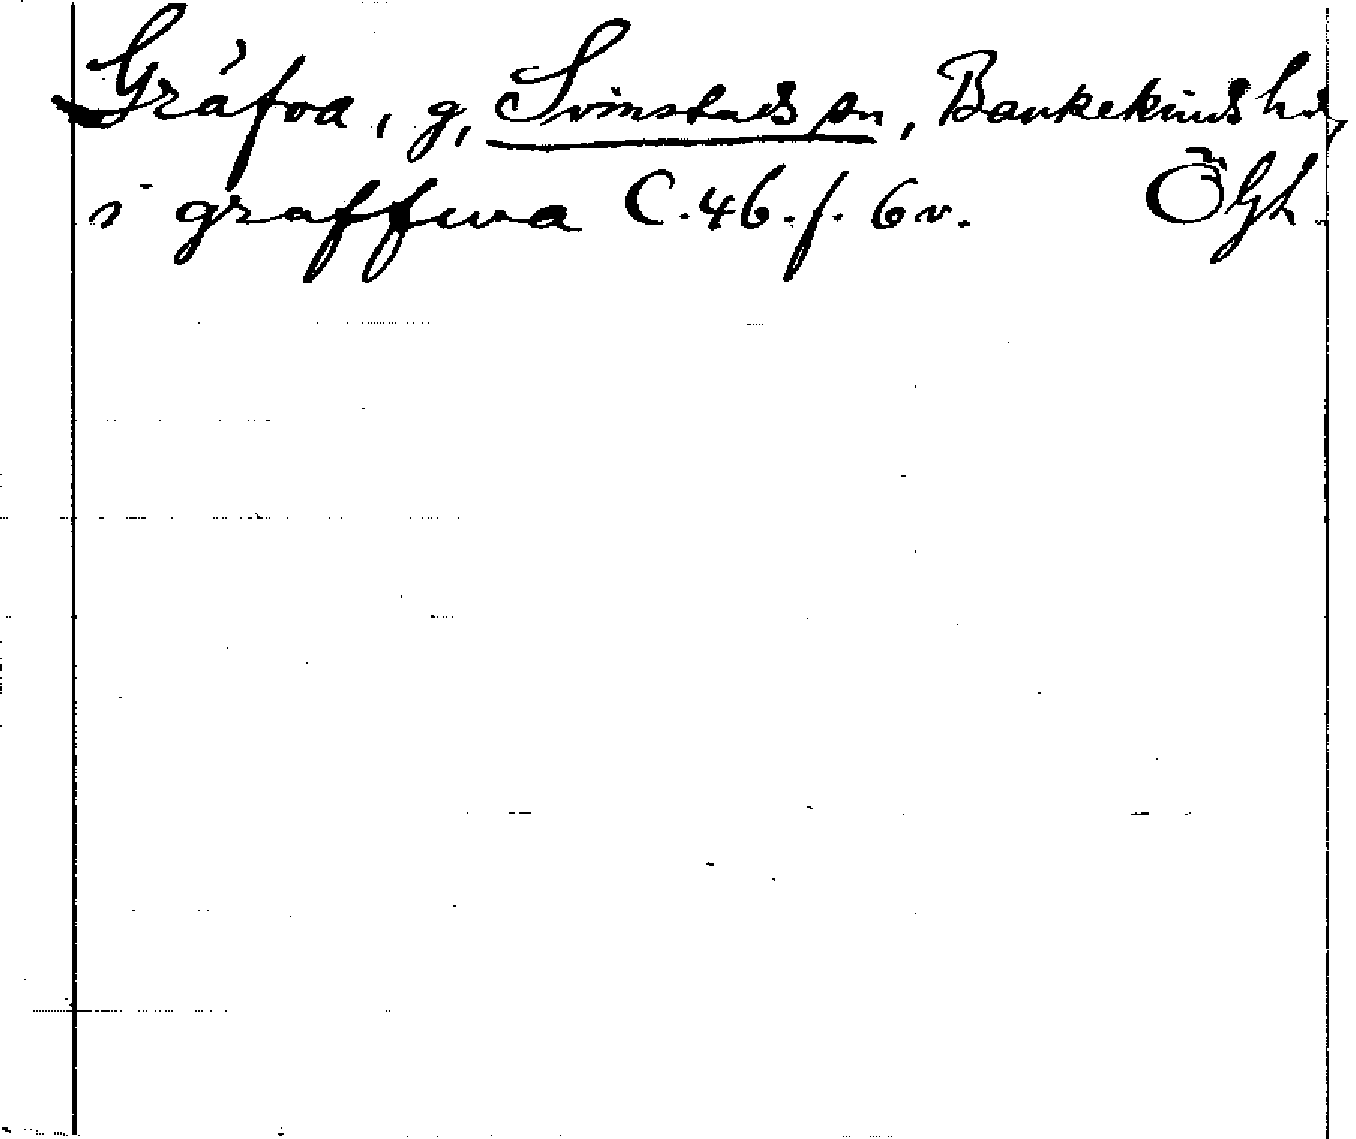 Gráfva, g, Svinstads sn, Bankekinds hd,
i graffwa C. 46. f. 6 v. Ögh.